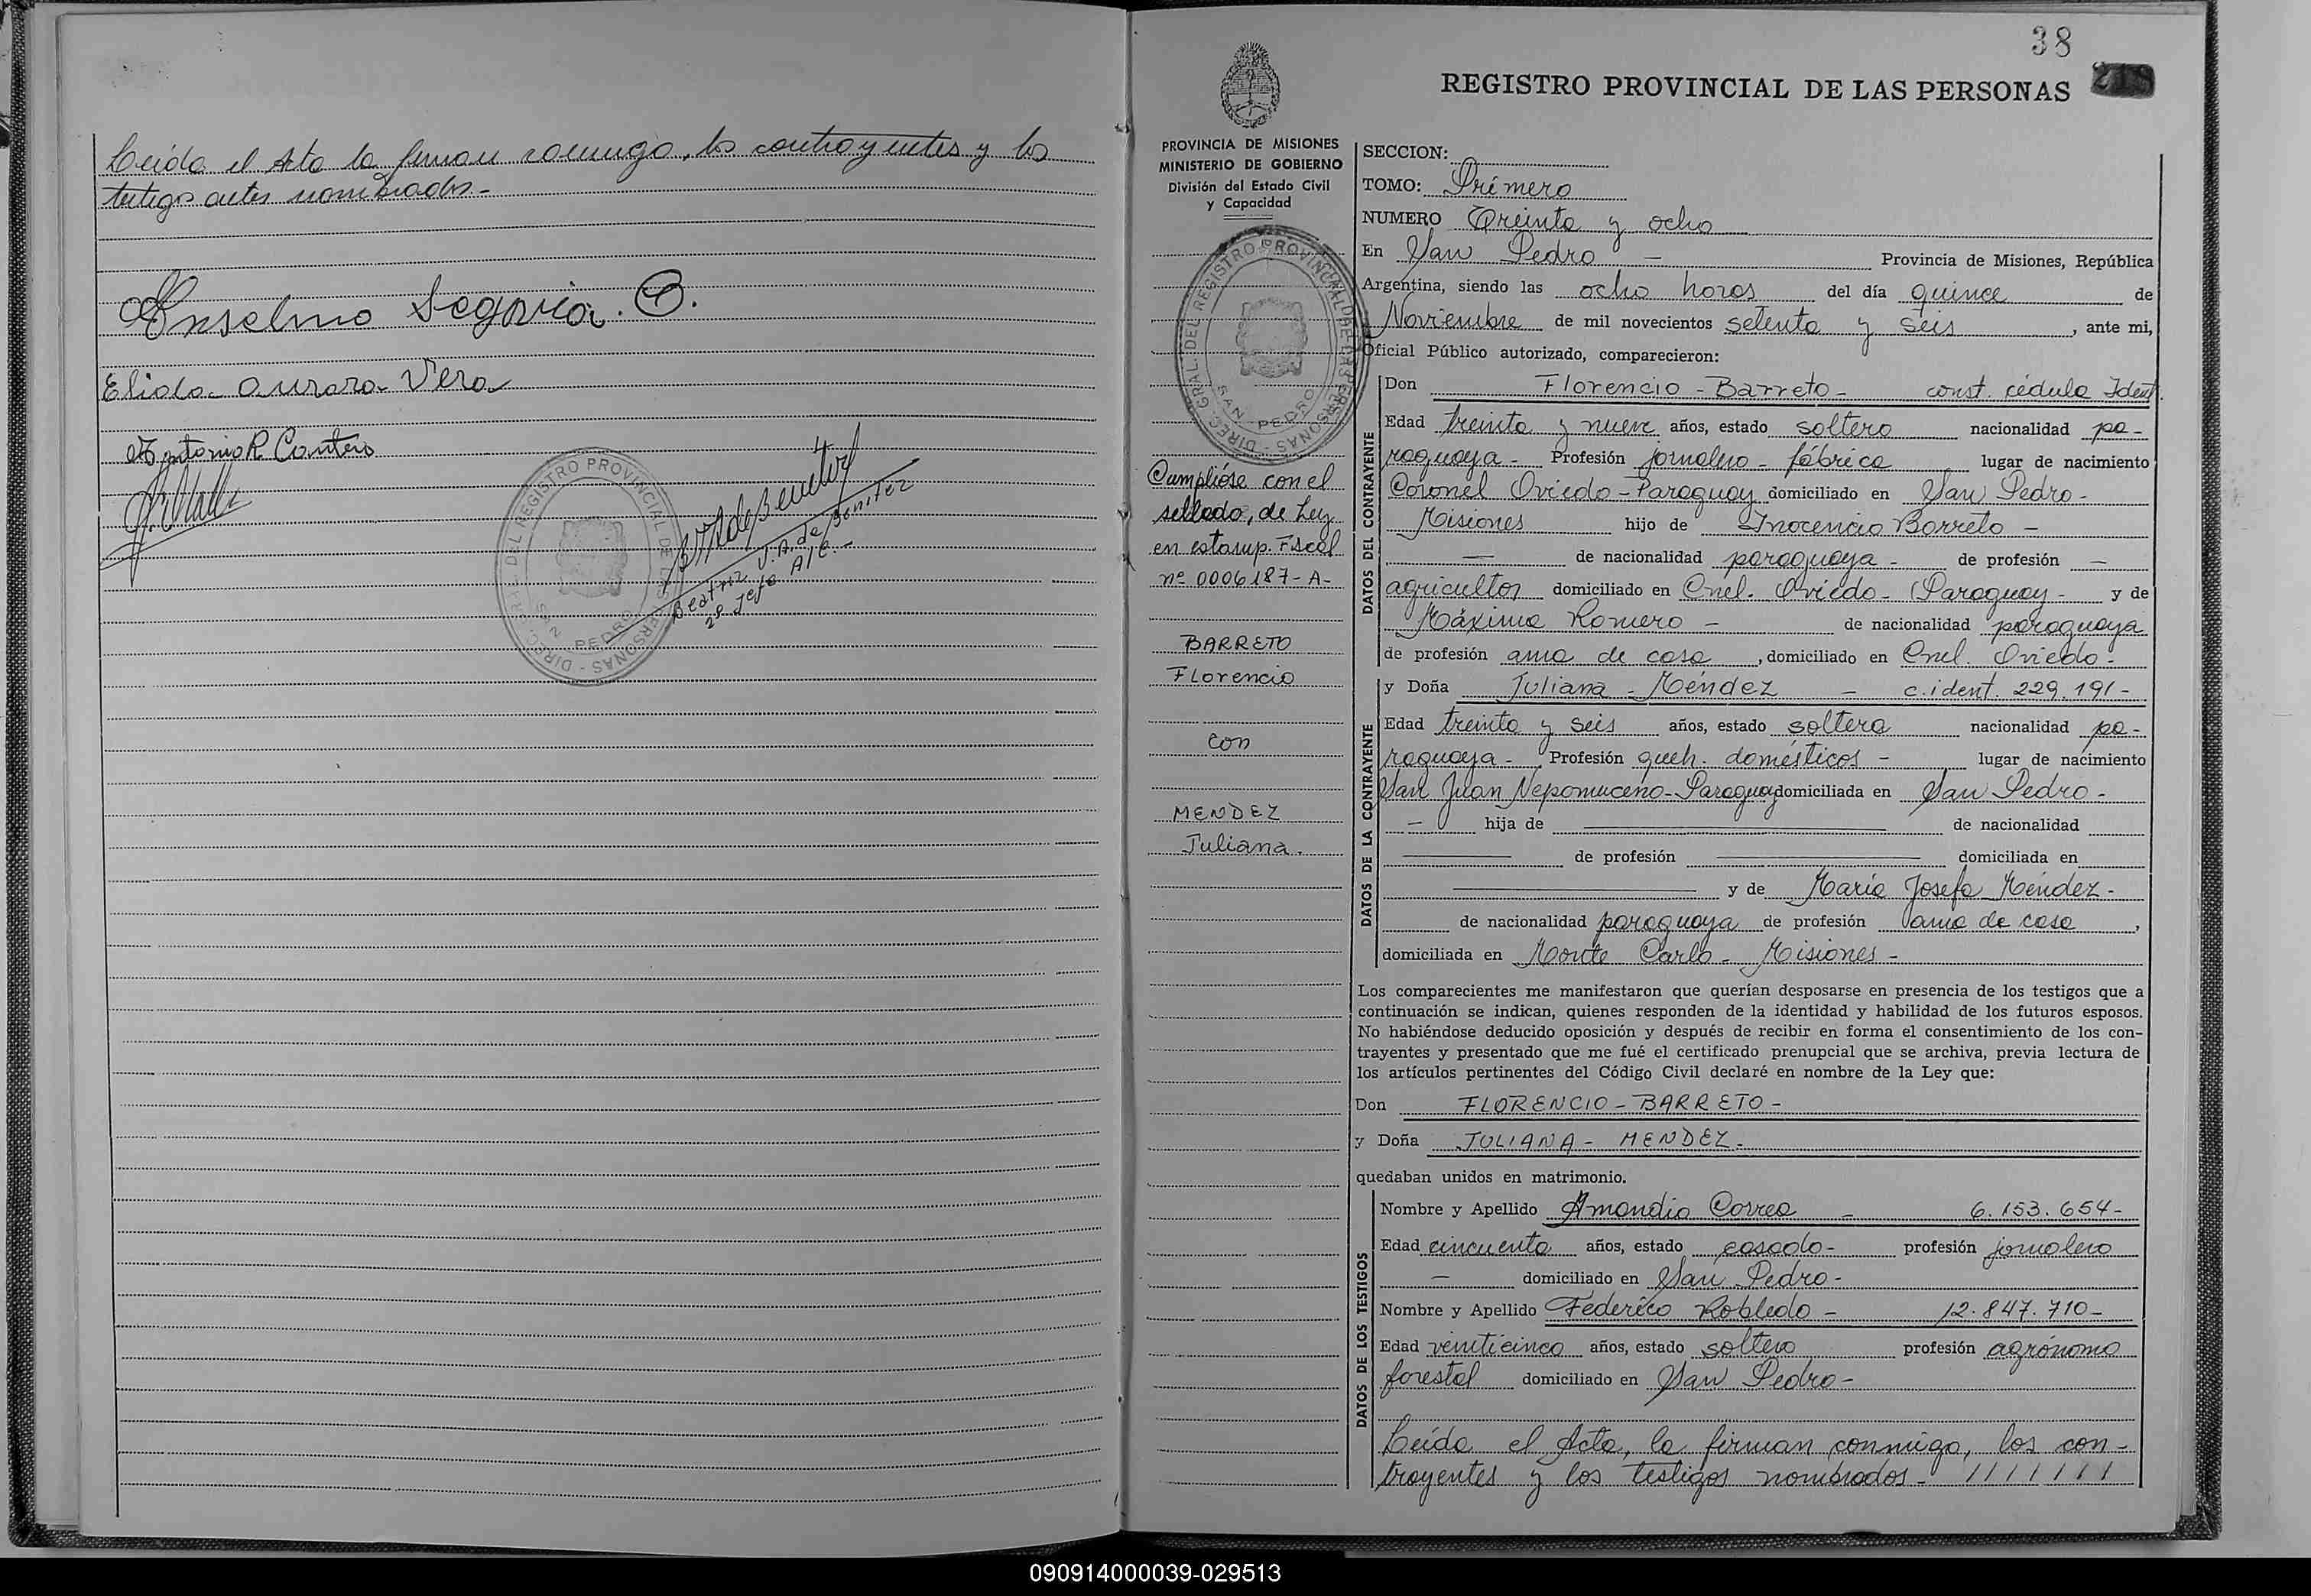 Leída el Acta la firman conmigo, los contrayentes y los
testigos antes nombrados.-
Anselmo Segovia. O.
Elida Aurora Vera
Antonio R
DIREC. GRAL. DEL REGISTRO PROVINCIAL DE LAS PERSONAS - SAN PEDRO
Beatriz J. A. de Benitez
2º Jefe A/C.-
38
REGISTRO PROVINCIAL DE LAS PERSONAS
PROVINCIA DE MISIONES
MINISTERIO DE GOBIERNO
División del Estado Civil
y Capacidad
DIREC. GRAL. DEL REGISTRO PROVINCIAL DE LAS PERSONAS - SAN PEDRO
Cumplióse con el
sellado, de Ley
en estamp. Fiscal
nº 0006187-A-
BARRETO
Florencio
con
MENDEZ
Juliana.
SECCION:
TOMO: Primero
NUMERO Treinta y ocho
En San Pedro - Provincia de Misiones, República
Argentina, siendo las ocho horas del día quince de
Noviembre de mil novecientos setenta y seis, ante mi,
Oficial Público autorizado, comparecieron:
DATOS DEL CONTRAYENTE
Don Florencio - Barreto - const. cédula Ident.
Edad treinta y nueve años, estado soltero nacionalidad pa-
raguaya - Profesión jornalero - fábrica lugar de nacimiento
Coronel Oviedo - Paraguay domiciliado en San Pedro -
Misiones hijo de Inocencio Barreto -
- de nacionalidad paraguaya - de profesión -
agricultor domiciliado en Cnel. Oviedo - Paraguay - y de
Máxima Romero - de nacionalidad paraguaya
de profesión ama de casa, domiciliado en Cnel. Oviedo -
DATOS DE LA CONTRAYENTE
y Doña Juliana - Méndez - c. ident. 229.191-
Edad treinta y seis años, estado soltera nacionalidad pa-
raguaya - Profesión queh. domésticos - lugar de nacimiento
San Juan Nepomuceno - Paraguay domiciliada en San Pedro -
- hija de de nacionalidad
de profesión domiciliada en
y de María Josefa Méndez -
de nacionalidad paraguaya de profesión ama de casa,
domiciliada en Monte Carlo - Misiones -
Los comparecientes me manifestaron que querían desposarse en presencia de los testigos que a
continuación se indican, quienes responden de la identidad y habilidad de los futuros esposos.
No habiéndose deducido oposición y después de recibir en forma el consentimiento de los con-
trayentes y presentado que me fué el certificado prenupcial que se archiva, previa lectura de
los artículos pertinentes del Código Civil declaré en nombre de la Ley que:
Don FLORENCIO - BARRETO -
y Doña JULIANA - MENDEZ -
quedaban unidos en matrimonio.
DATOS DE LOS TESTIGOS
Nombre y Apellido Amandio Correa - 6.153.654-
Edad cincuenta años, estado casado - profesión jornalero
- domiciliado en San Pedro -
Nombre y Apellido Federico Robledo - 12.847.710-
Edad veinticinco años, estado soltero profesión agrónomo
forestal domiciliado en San Pedro -
Leída el Acta, la firman conmigo, los con-
trayentes y los testigos nombrados - / / / / / / /
090914000039-029513